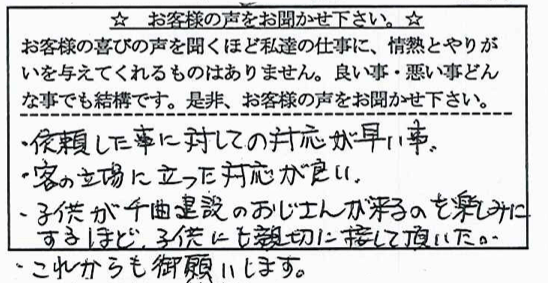 ☆ お客様の声をお聞かせ下さい。☆
お客様の喜びの声を聞くほど私達の仕事に、情熱とやりが
いを与えてくれるものはありません。良い事・悪い事どん
な事でも結構です。是非、お客様の声をお聞かせ下さい。
・依頼した事に対しての対応が早い事。
・客の立場に立った対応が良い。
・子供が千曲建設のおじさんが来るのを楽しみに
するほど、子供にも親切に接して頂いた
・これからも御願いします。